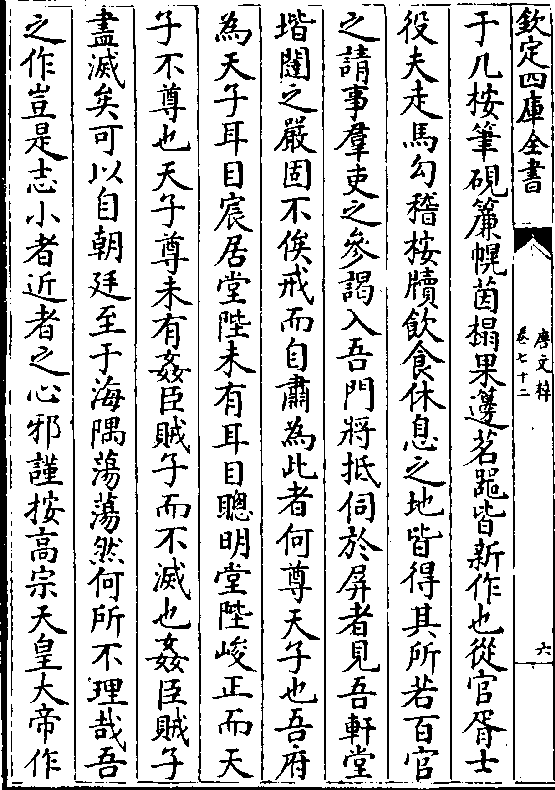 欽定四庫全書
唐文粹
卷七十二
六
于几桉筆硯簾幌茵榻果籩茗甌皆新作也從官胥士
役夫走馬勾稽桉牘飲食休息之地皆得其所若百官
之請事羣吏之參謁入吾門將抵伺於屏者見吾軒堂
堦闥之嚴固不俟戒而自肅為此者何尊天子也吾府
為天子耳目宸居堂陛未有耳目聰明堂陛峻正而天
子不尊也天子尊未有姦臣賊子而不滅也姦臣賊子
盡滅矣可以自朝廷至于海隅蕩蕩然何所不理哉吾
之作豈是志小者近者之心邪謹按高宗天皇大帝作